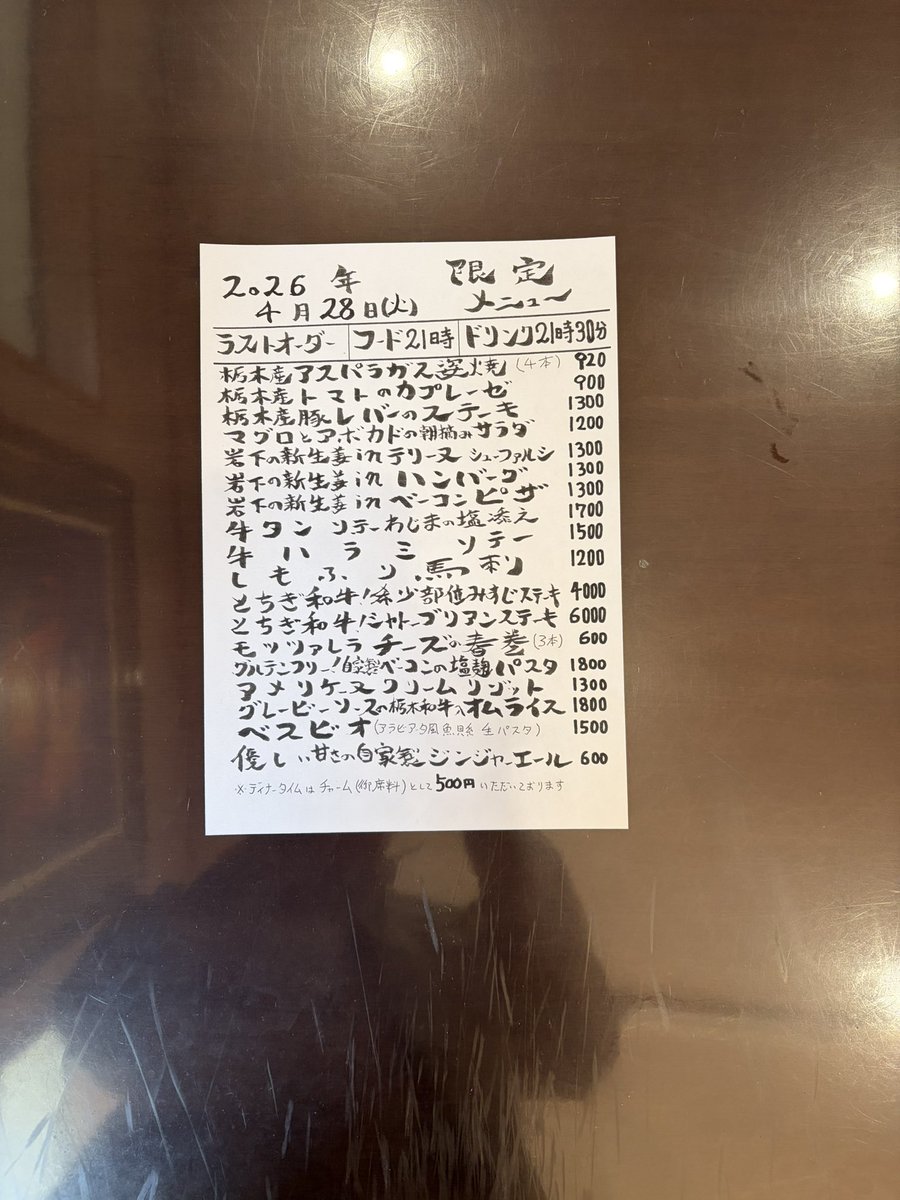 2026年 限定
4月28日(火) メニュー
ラストオーダー フード21時 ドリンク21時30分
栃木産アスパラガス炭焼(4本) 920
栃木産トマトのカプレーゼ 900
栃木産豚レバーのステーキ 1300
マグロとアボカドの朝摘みサラダ 1200
岩下の新生姜inテリーヌ シューファルシ 1300
岩下の新生姜in ハンバーグ 1300
岩下の新生姜in ベーコンピザ 1300
牛タン ソテーわじまの塩添え 1700
牛ハラミ ソテー 1500
しもふり馬刺 1200
とちぎ和牛!希少部位みすじステキ 4000
とちぎ和牛!シャトーブリアンステーキ 6000
モッツァレラチーズの春巻(3本) 600
グルテンフリー!自家製ベーコンの塩麹パスタ 1800
アメリケーヌクリームリゾット 1300
グレービーソースの栃木和牛入オムライス 1800
ベスビオ(アラビアータ風魚貝系 生パスタ) 1500
優しい甘さの自家製ジンジャーエール 600
※ディナータイムはチャーム(御席料)として500円いただいております